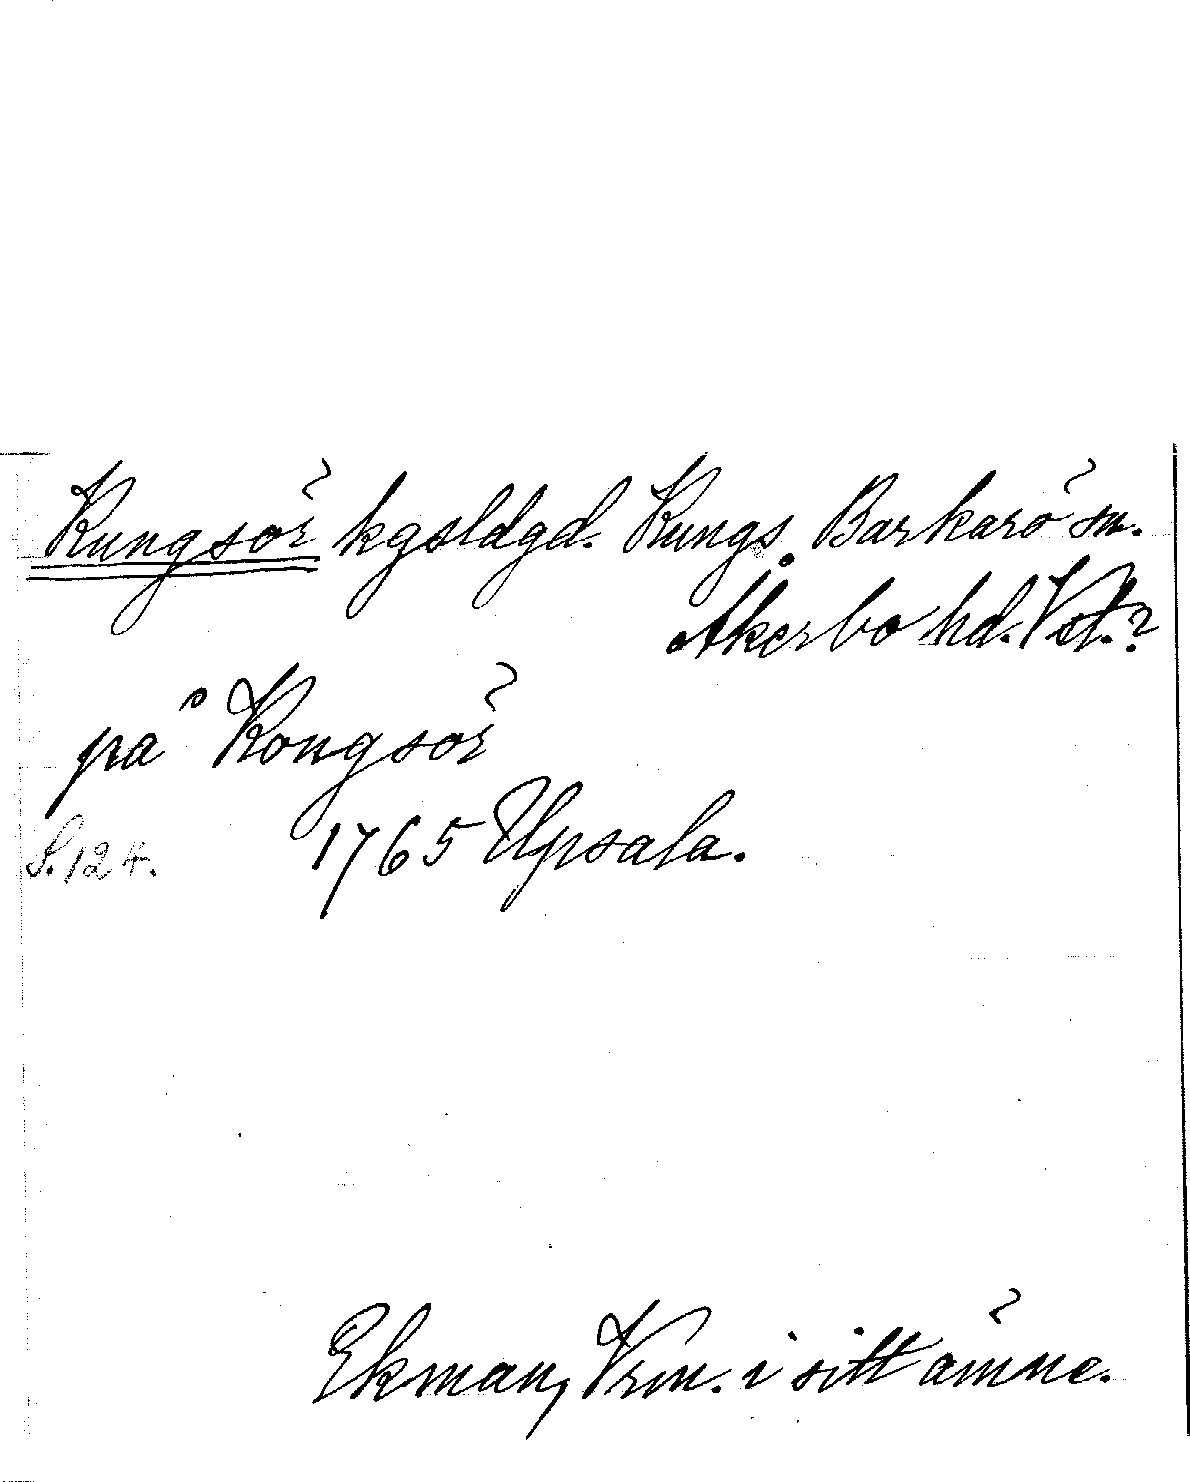 Kungsör kgsldgd. Kungs Barkarö sn.
Åkerbo hd. Vstl.?
på Kongsör
1765 Upsala.
S. 124.
Ekman, Vrm. i sitt ämne.